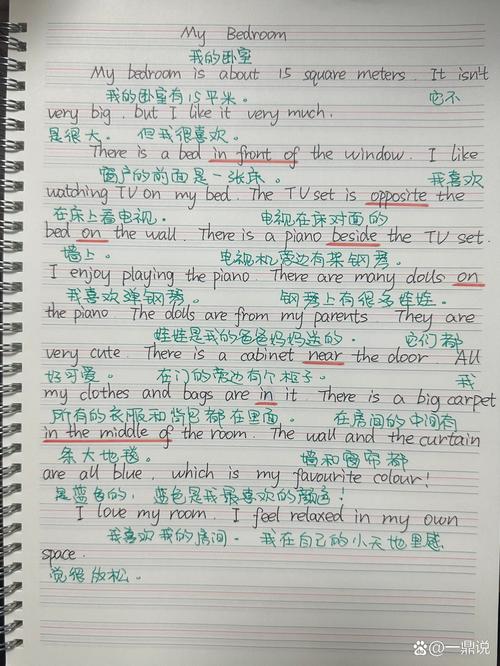 My Bedroom
我的卧室
My bedroom is about 15 square meters. It isn't
我的卧室有15平米。 它不
very big, but I like it very much.
是很大。 但我很喜欢。
There is a bed in front of the window. I like
窗户的前面是一张床。 我喜欢
watching TV on my bed. The TV set is opposite the
在床上看电视。 电视在床对面的
bed on the wall. There is a piano beside the TV set.
墙上。 电视机旁边有架钢琴。
I enjoy playing the piano. There are many dolls on
我喜欢弹钢琴。 钢琴上有很多娃娃。
the piano. The dolls are from my parents. They are
娃娃是我的爸爸妈妈送的。 它们都
very cute. There is a cabinet near the door. All
好可爱。 在门的旁边有个柜子。 我
my clothes and bags are in it. There is a big carpet
所有的衣服和背包都在里面。 在房间的中间有
in the middle of the room. The wall and the curtain
条大地毯。 墙和窗帘都
are all blue, which is my favourite colour!
是蓝色的，蓝色是我最喜欢的颜色！
I love my room. I feel relaxed in my own
我喜欢我的房间。 我在自己的小天地里感
space.
觉很放松。
@一鼎说